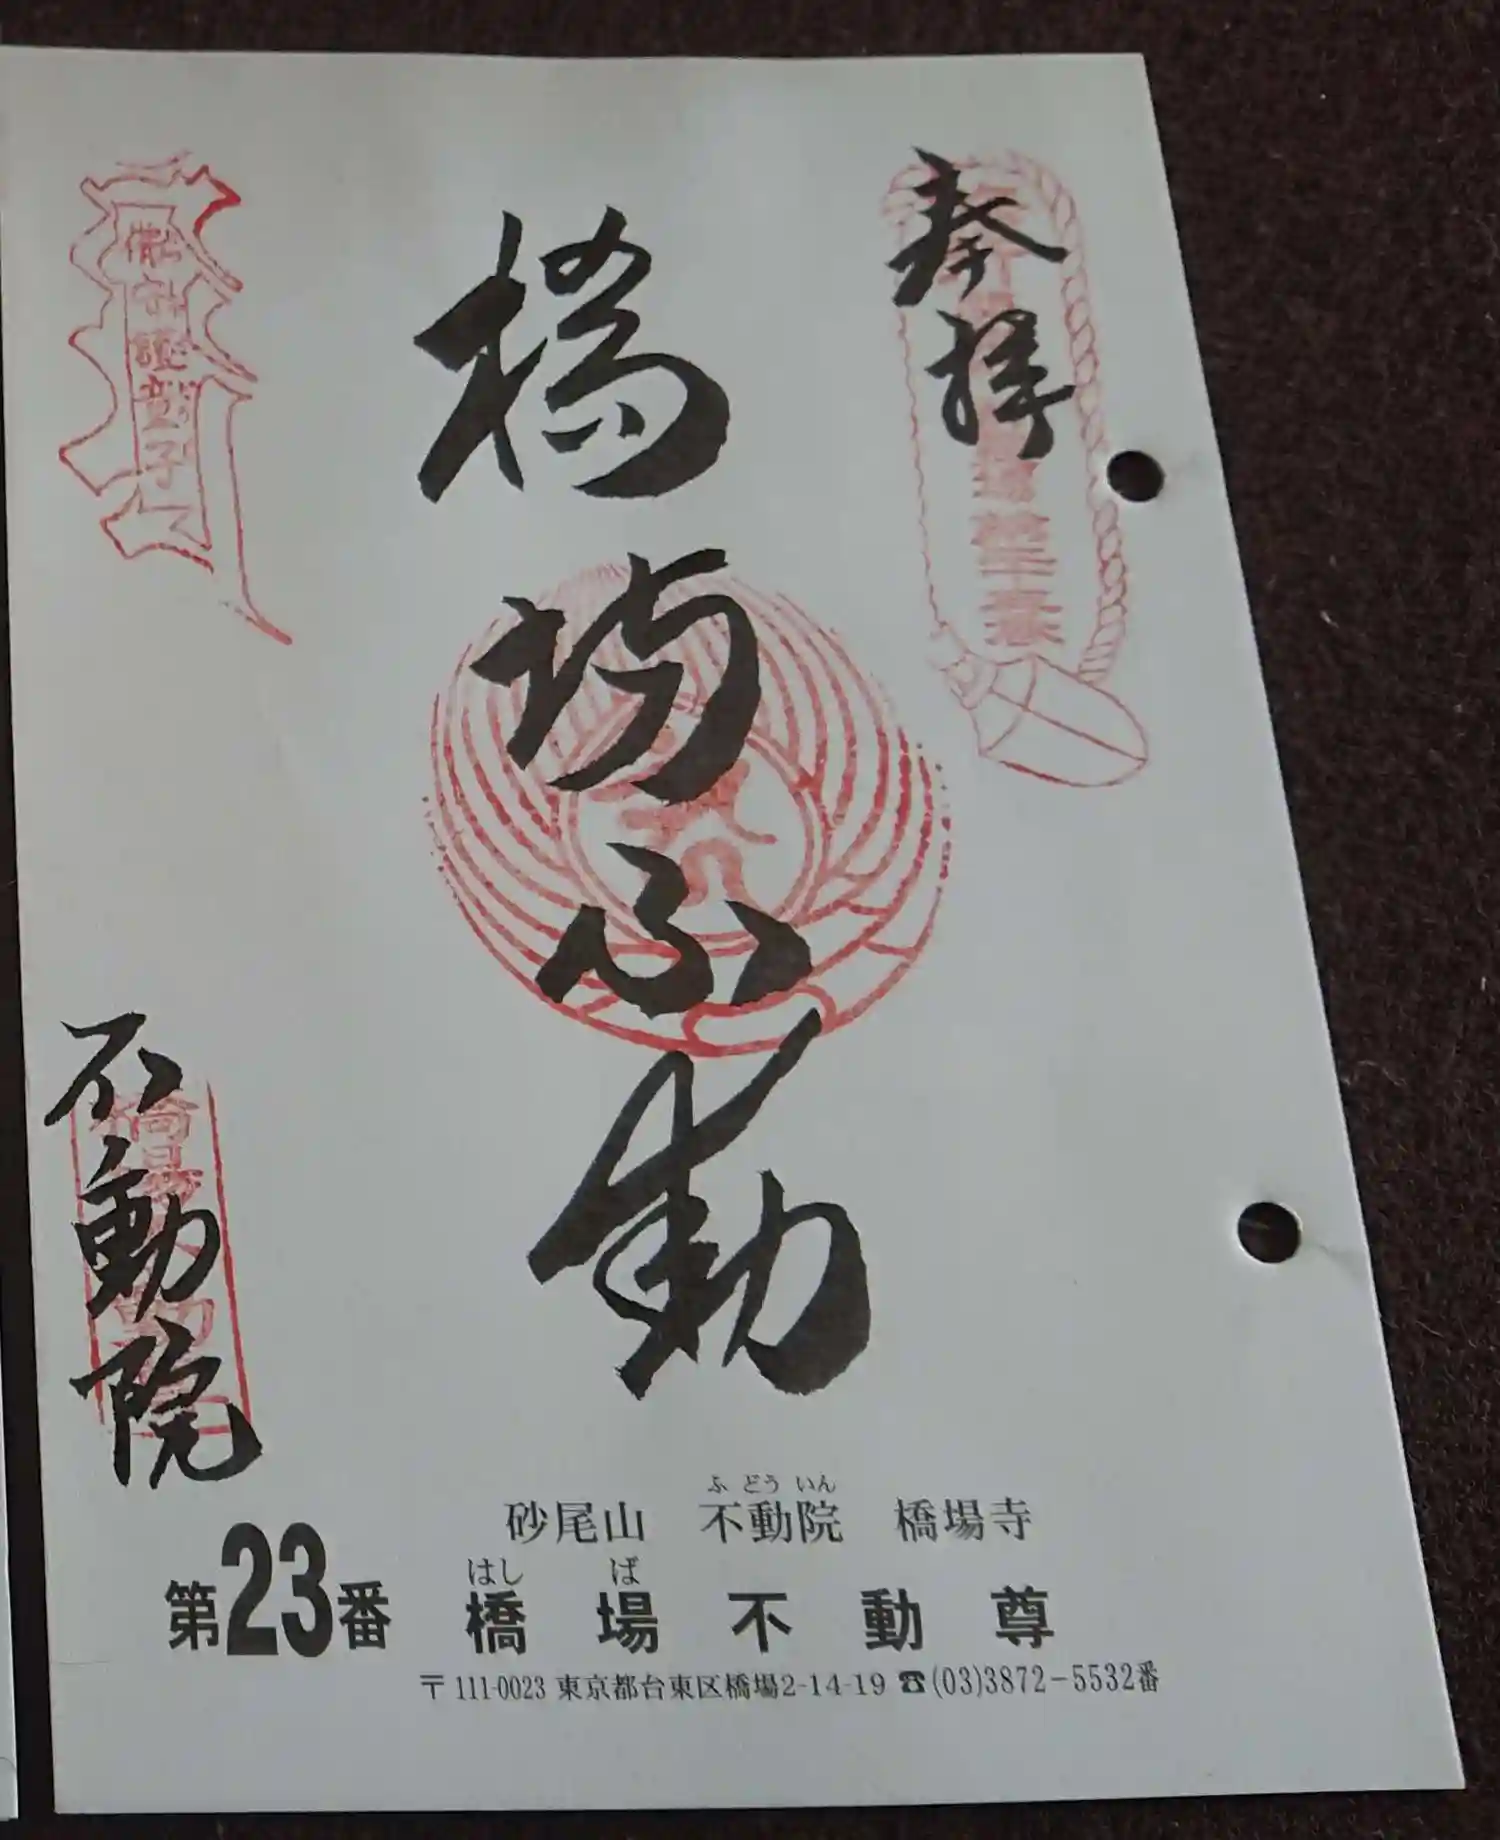 奉拝
橋場ふ動
不動院
ふどういん
砂尾山 不動院 橋場寺
はしば
第23番 橋場不動尊
〒111-0023 東京都台東区橋場2-14-19 ☎(03)3872-5532番